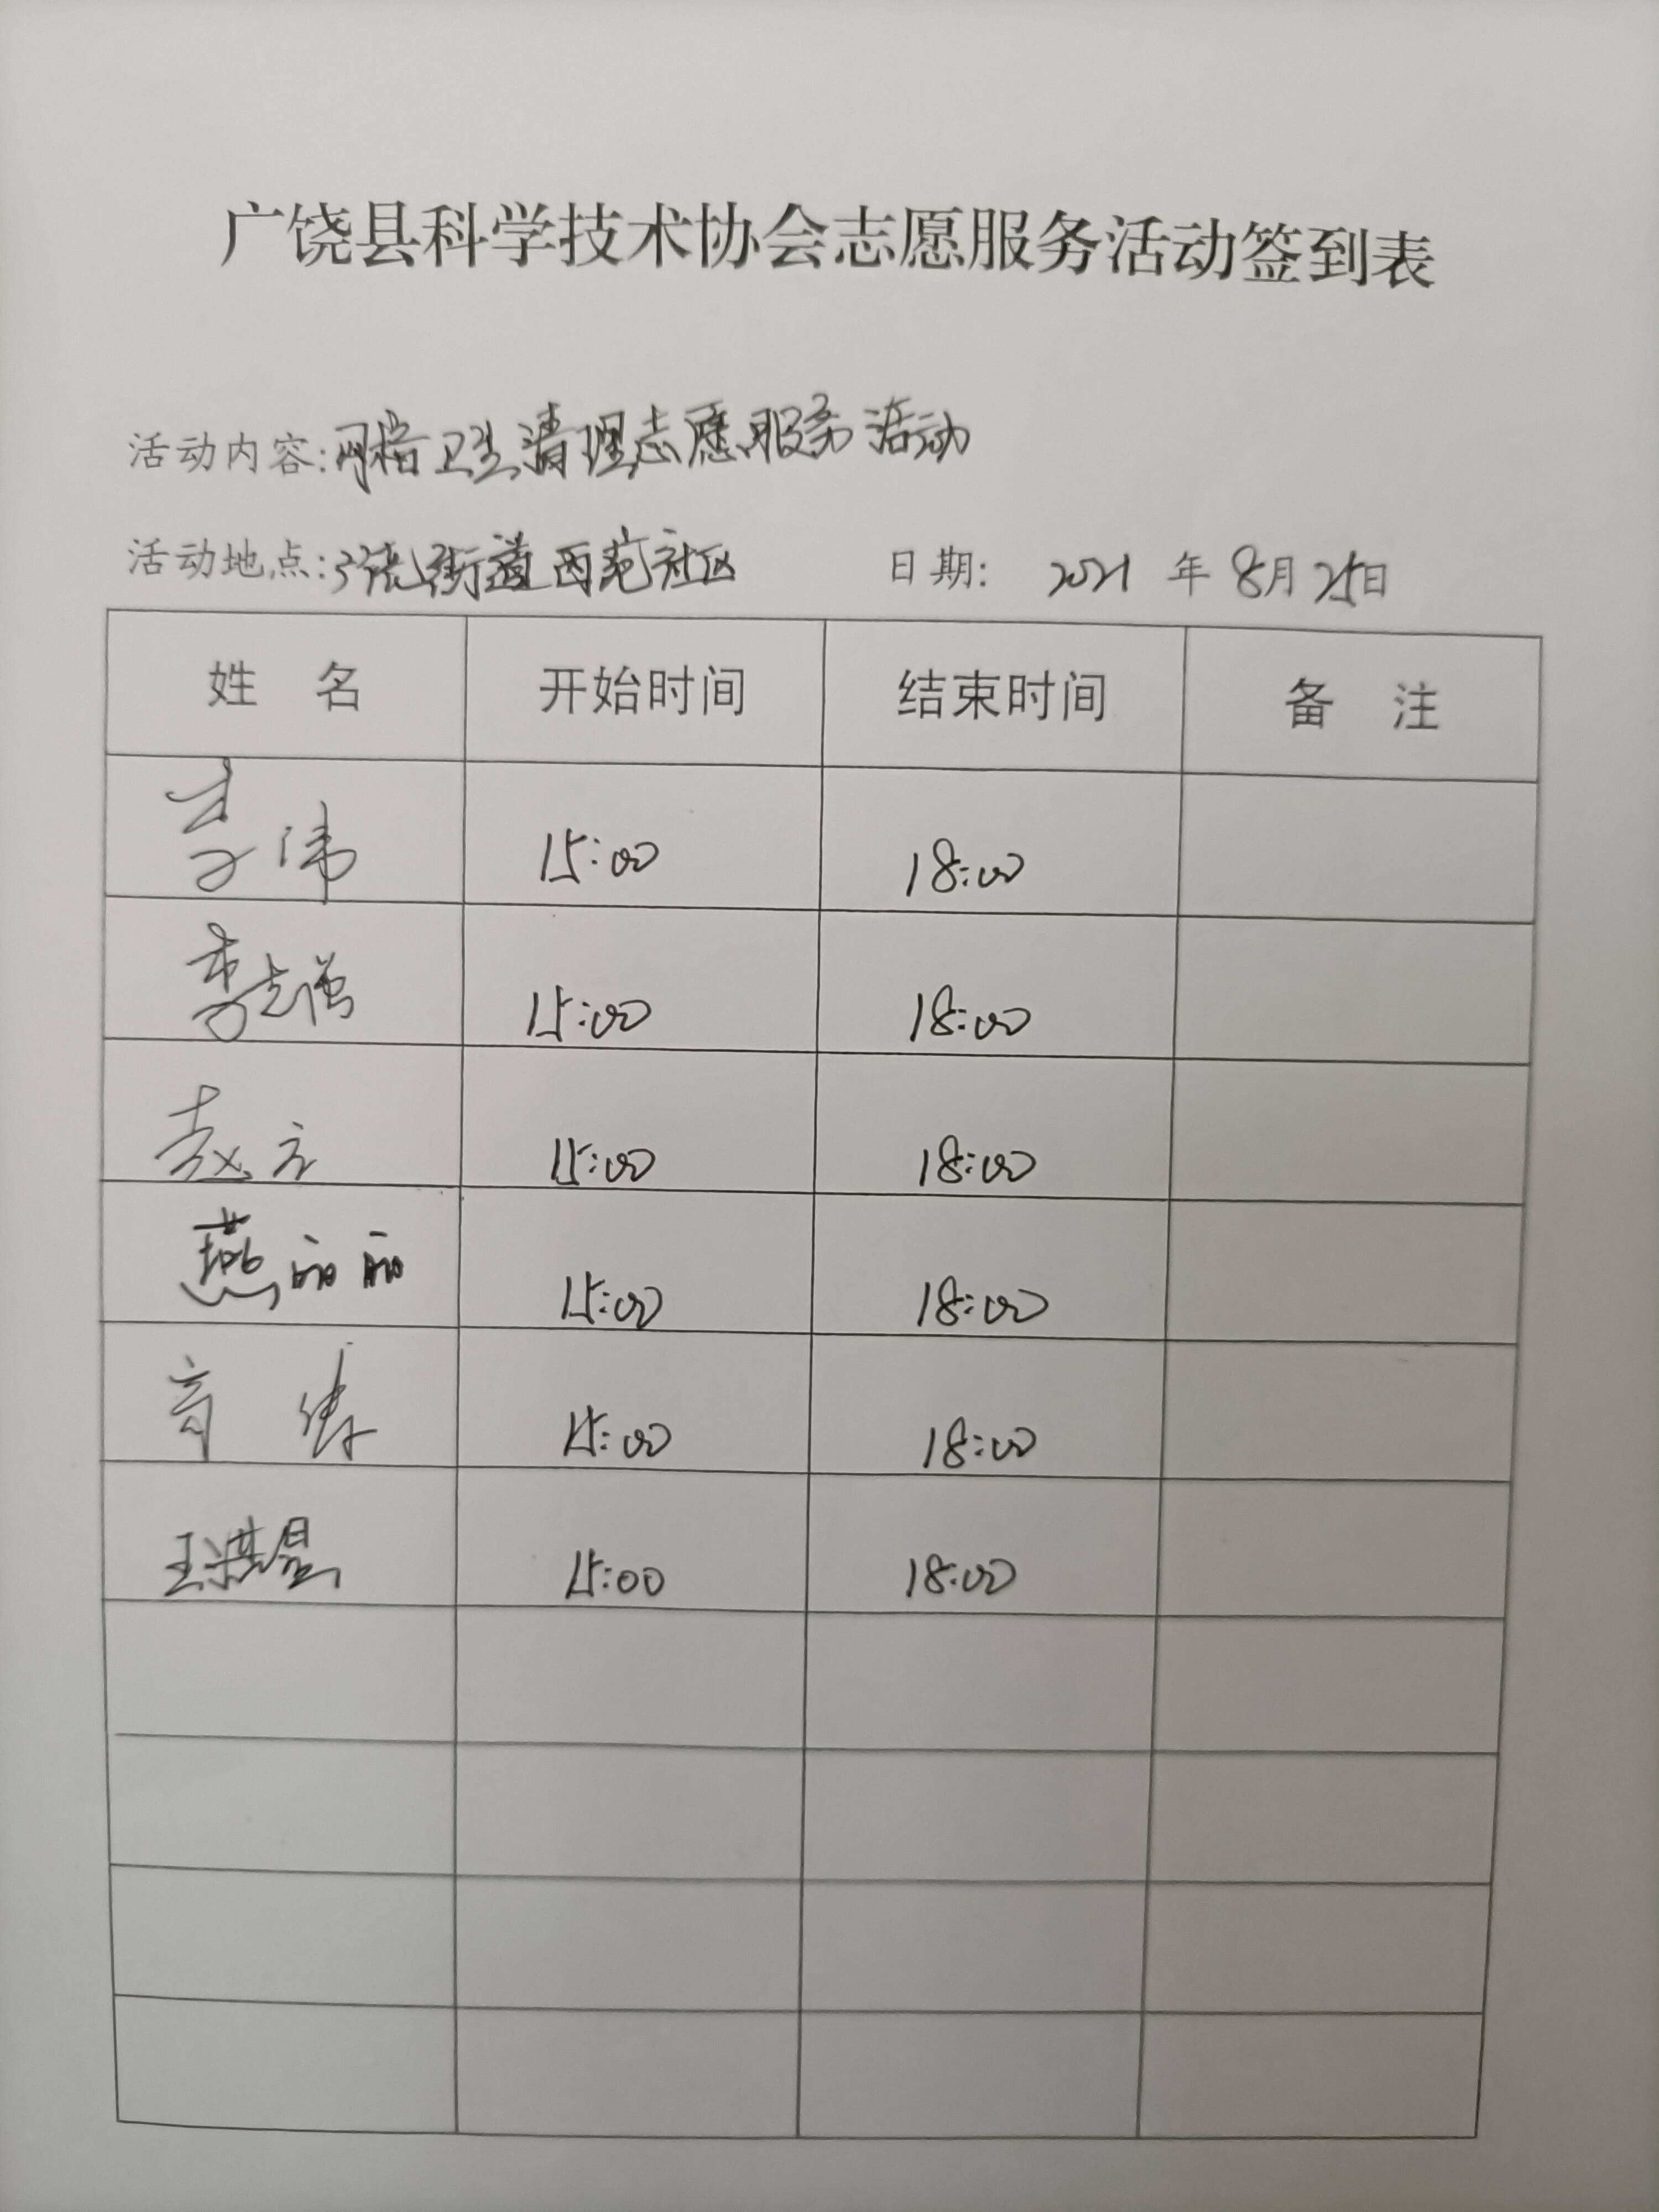 广饶县科学技术协会志愿服务活动签到表
活动内容:网格卫生清理志愿服务活动
活动地点:广饶街道西苑社区 日期: 2021 年 8月 25日
姓 名 开始时间 结束时间 备 注
李伟 15:00 18:00
李志强 15:00 18:00
赵 15:00 18:00
燕丽丽 15:00 18:00
15:00 18:00
王洪星 15:00 18:00